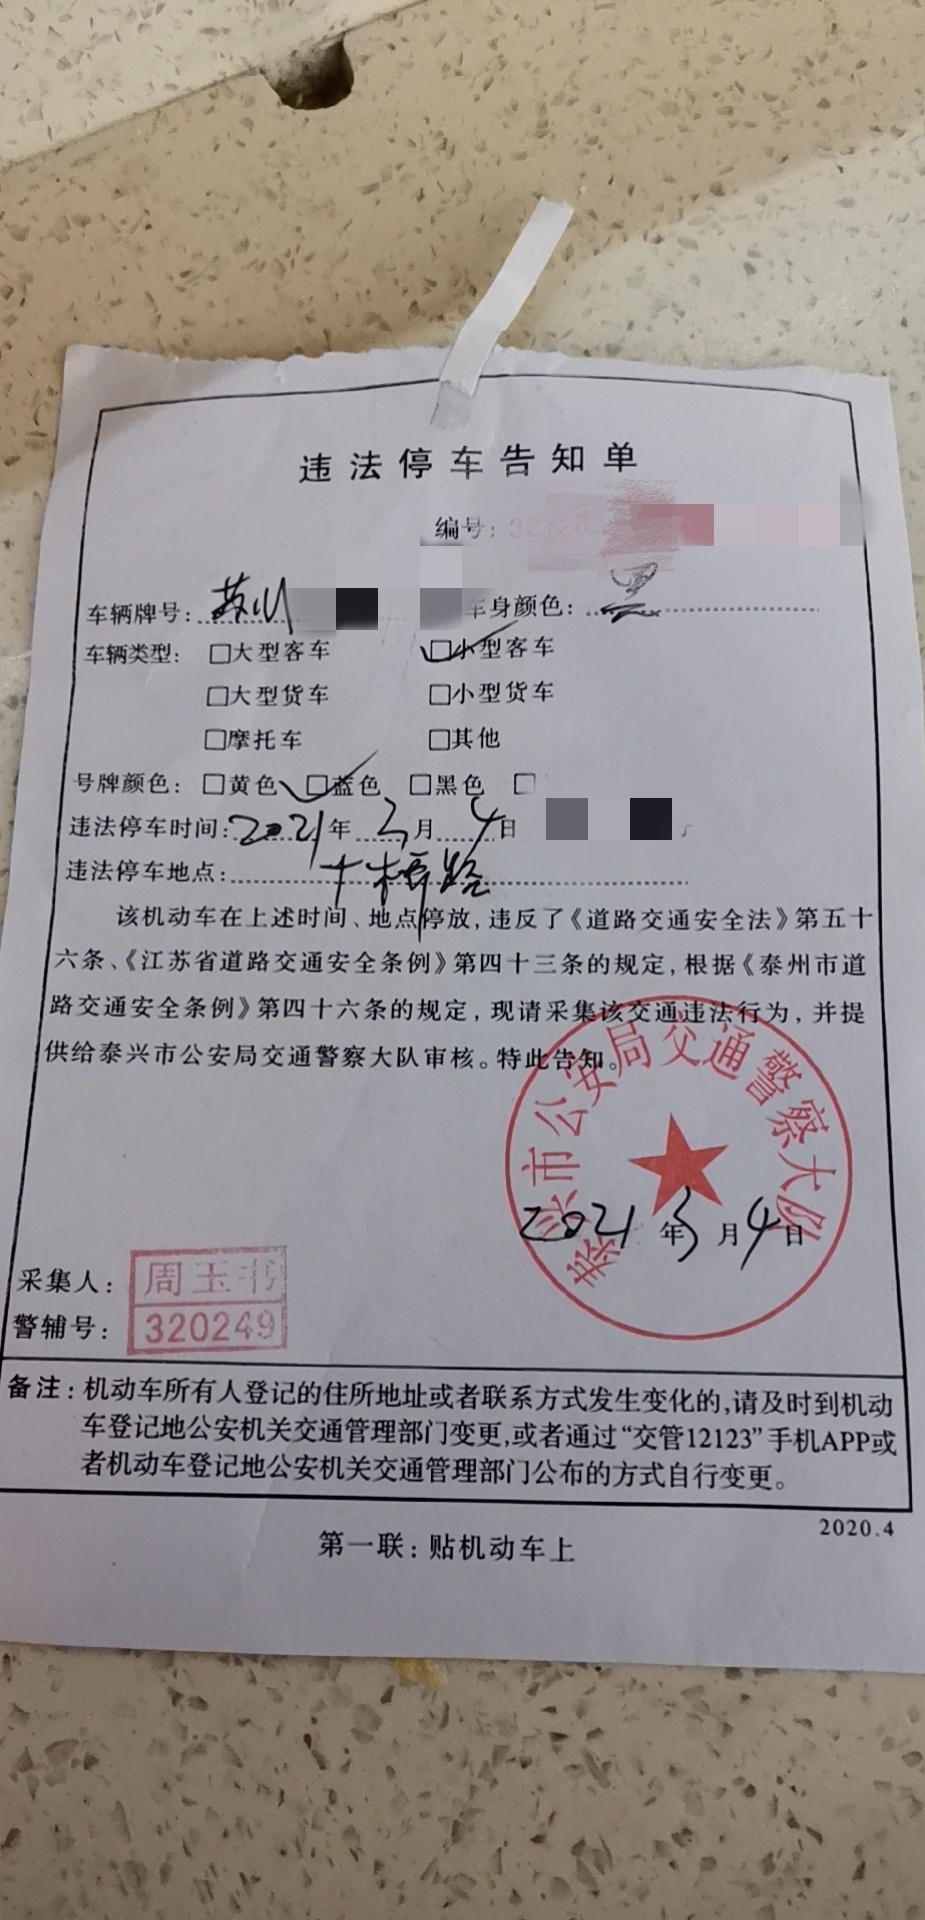 违法停车告知单
编号:
车辆牌号: 苏 车身颜色: 黑
车辆类型: □大型客车 □小型客车
□大型货车 □小型货车
□摩托车 □其他
号牌颜色: □黄色 □蓝色 □黑色 □
违法停车时间: 2021年3月4日
违法停车地点: 十桥路
该机动车在上述时间、地点停放,违反了《道路交通安全法》第五十
六条、《江苏省道路交通安全条例》第四十三条的规定,根据《泰州市道
路交通安全条例》第四十六条的规定,现请采集该交通违法行为,并提
供给泰兴市公安局交通警察大队审核。特此告知。
泰兴市公安局交通警察大队
2021年3月4日
采集人: 周玉书
警辅号: 320249
备注:机动车所有人登记的住所地址或者联系方式发生变化的,请及时到机动
车登记地公安机关交通管理部门变更,或者通过“交管12123”手机APP或
者机动车登记地公安机关交通管理部门公布的方式自行变更。
2020.4
第一联:贴机动车上